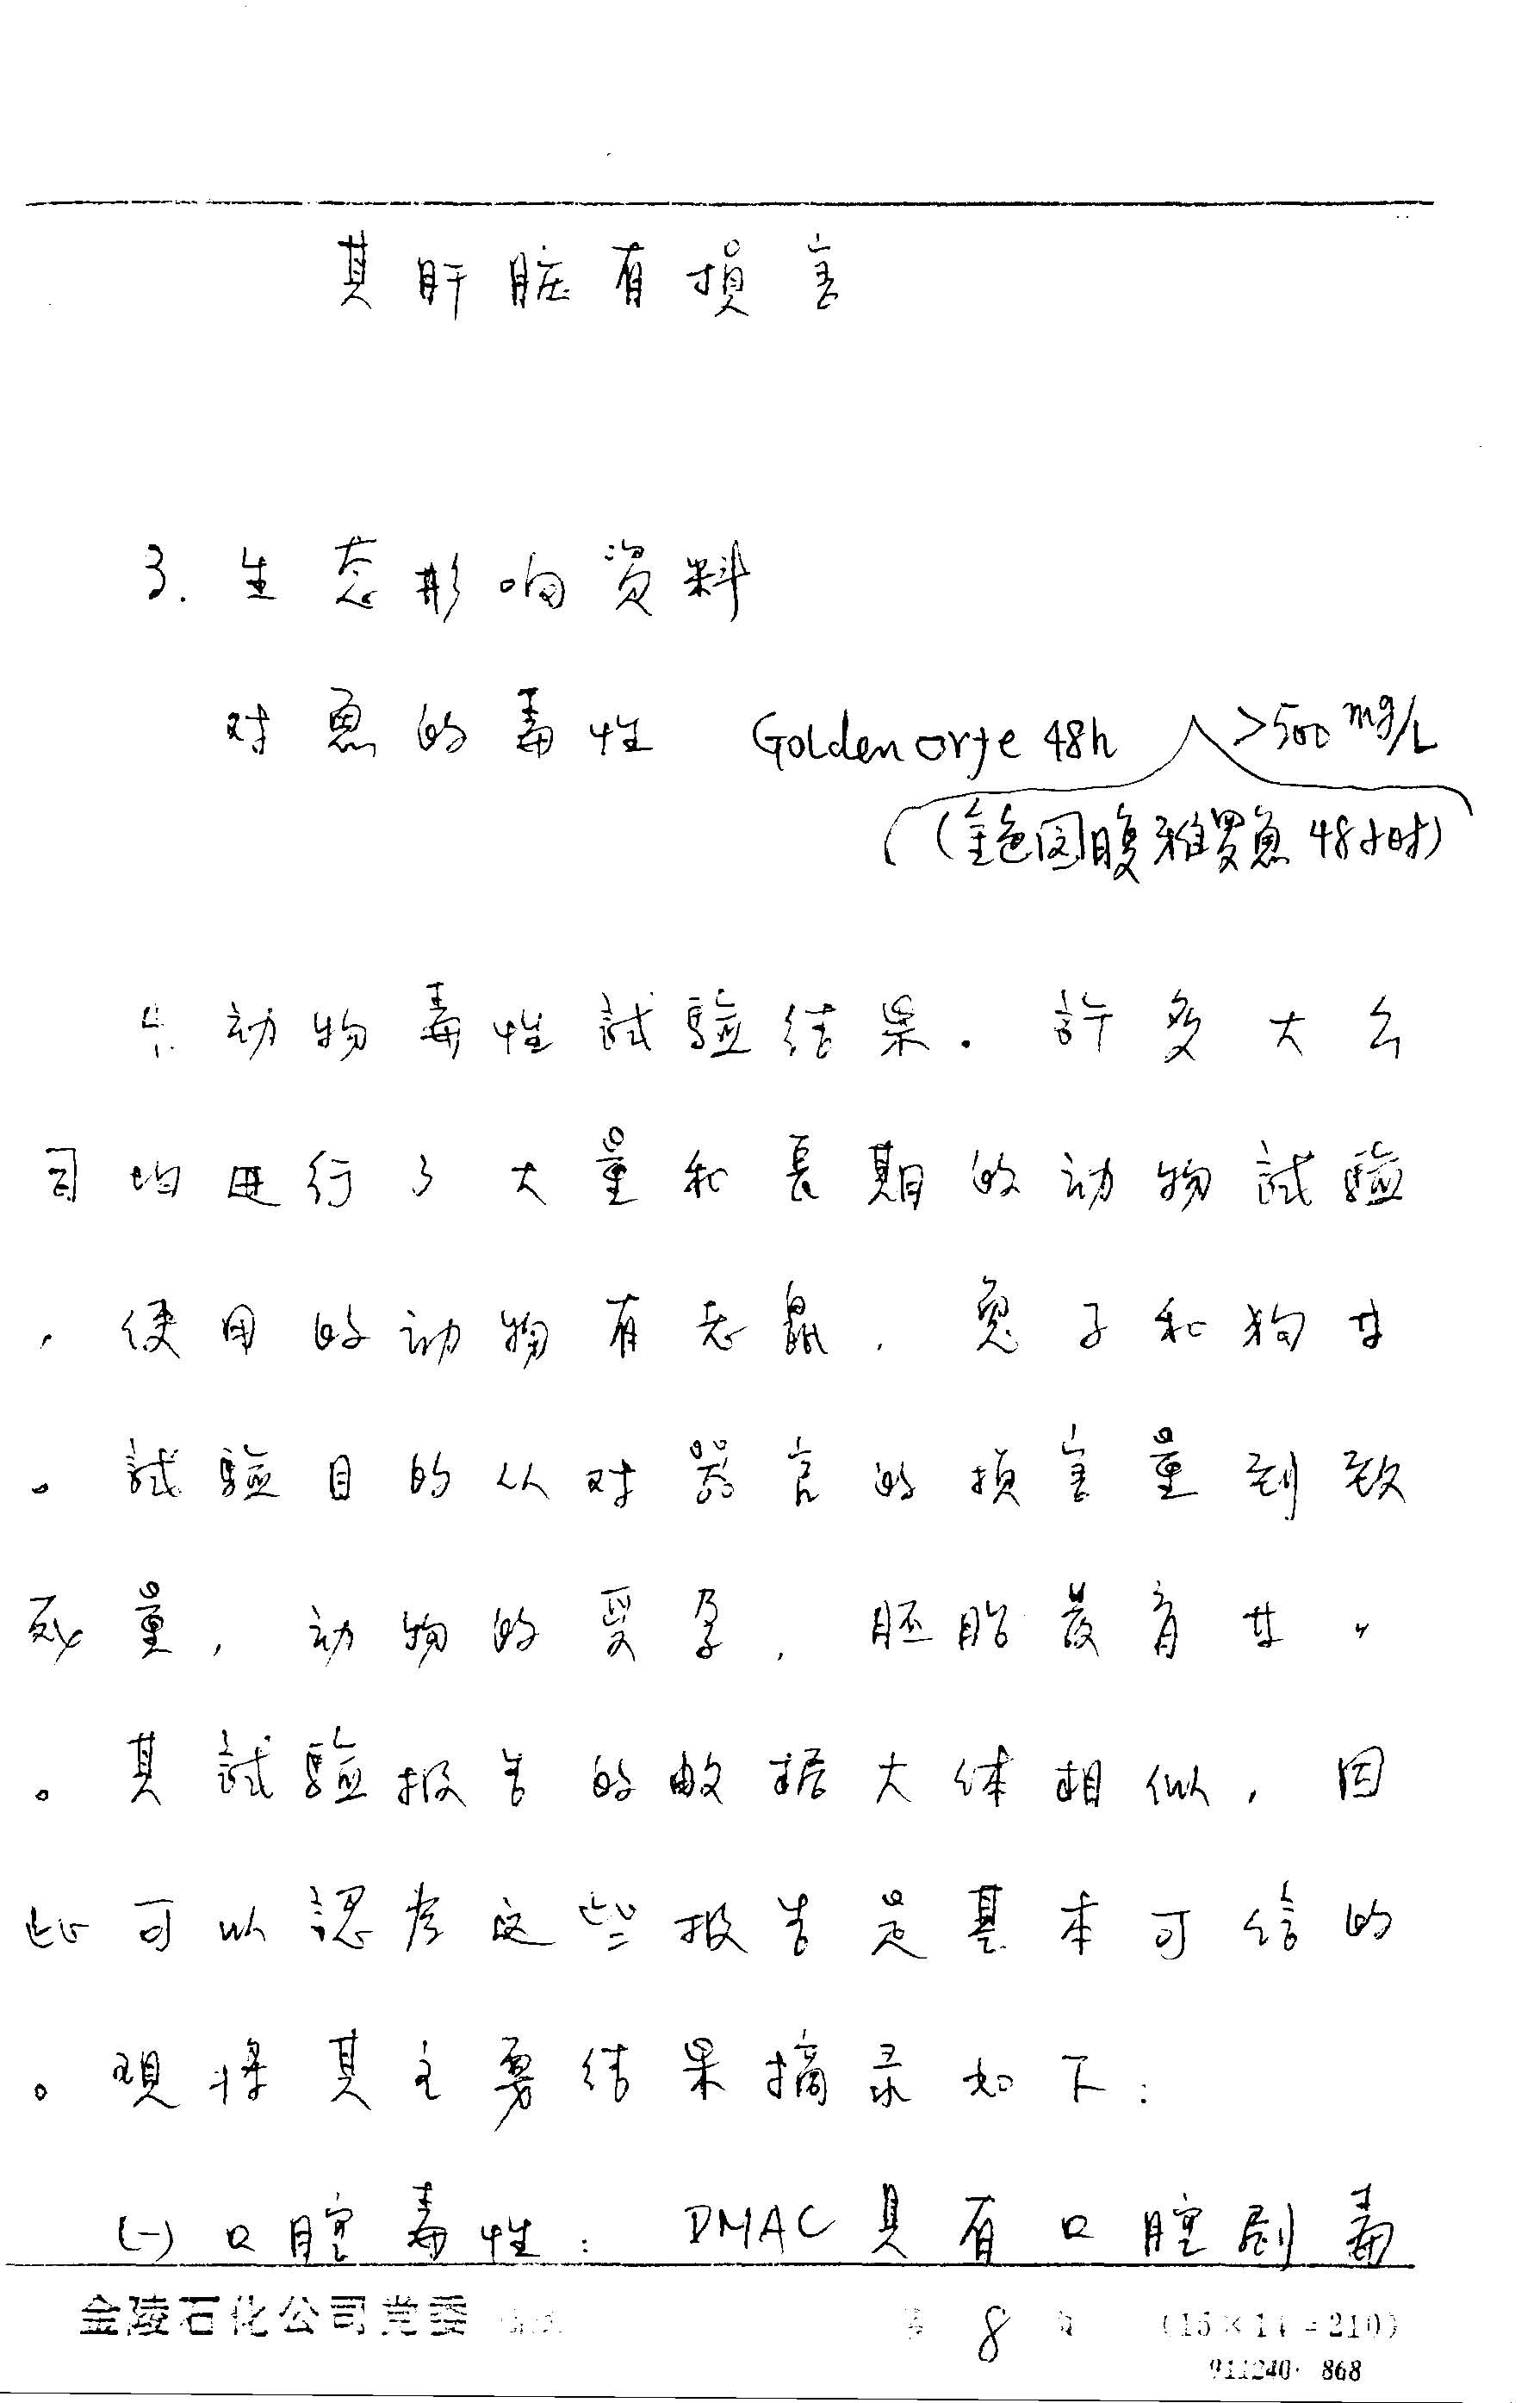 其肝脏有损害
3. 生态影响资料
对鱼的毒性 Golden orfe 48h >500 mg/L
(金色圆腹雅罗鱼 48小时)
4. 动物毒性試驗结果. 許多大公
司均进行了大量和長期的动物試驗
，使用的动物有老鼠，兔子和狗等
。試驗目的从对器官的损害量到致
死量，动物的受孕，胚胎发育等..
。其試驗报告的数据大体相似，因
此可以認为这些报告是基本可信的
。現将其主要结果摘录如下：
(一)口腔毒性： DMAC具有口腔剧毒
金陵石化公司党委 第 8 页 (15×14=210)
911240· 868